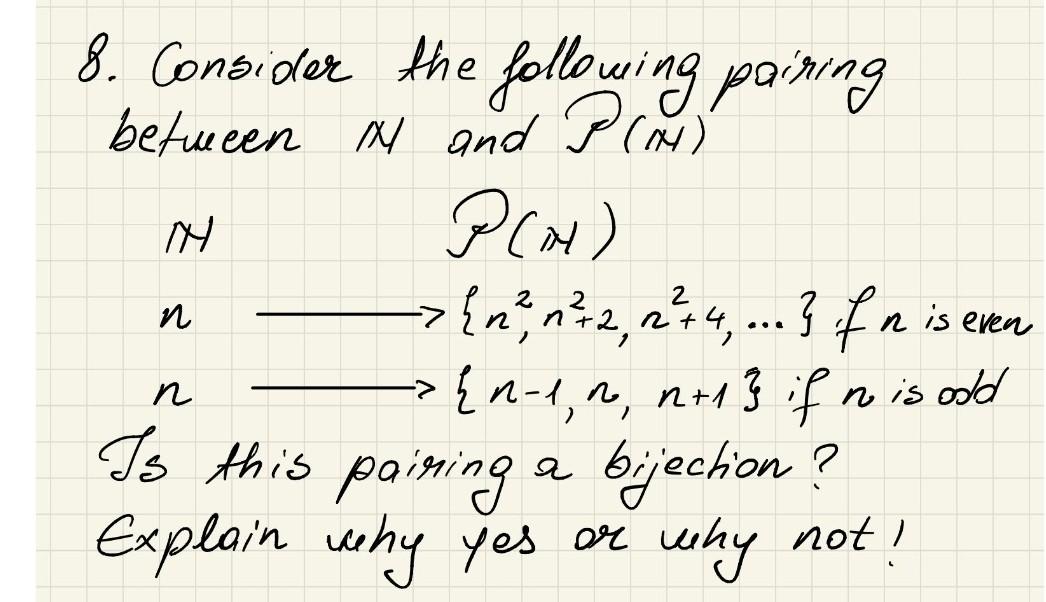 8. Consider the following pairing
between ℕ and P(ℕ)
ℕ P(ℕ)
n ⟶ {n², n²+2, n²+4, ...} if n is even
n ⟶ {n-1, n, n+1} if n is odd
Is this pairing a bijection?
Explain why yes or why not!